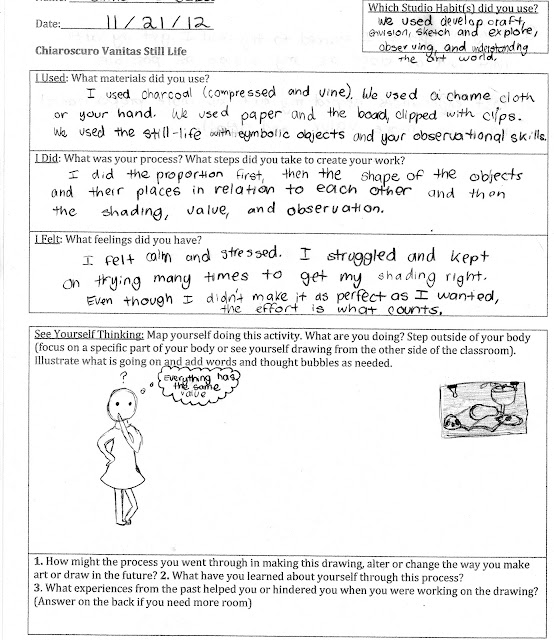 Date: 11/21/12
Which Studio Habit(s) did you use?
We used develop craft,
envision, sketch and explore,
observing, and understandng
the art world.
Chiaroscuro Vanitas Still Life
I Used: What materials did you use?
I used charcoal (compressed and vine). We used a chame cloth
or your hand. We used paper and the board, clipped with clips.
We used the still-life with symbolic objects and your observational skills.
I Did: What was your process? What steps did you take to create your work?
I did the proportion first, then the shape of the objects
and their places in relation to each other and then
the shading, value, and observation.
I Felt: What feelings did you have?
I felt calm and stressed. I struggled and kept
on trying many times to get my shading right.
Even though I didn't make it as perfect as I wanted,
the effort is what counts.
See Yourself Thinking: Map yourself doing this activity. What are you doing? Step outside of your body
(focus on a specific part of your body or see yourself drawing from the other side of the classroom).
Illustrate what is going on and add words and thought bubbles as needed.
?
Everything has
the same
value
1. How might the process you went through in making this drawing, alter or change the way you make
art or draw in the future? 2. What have you learned about yourself through this process?
3. What experiences from the past helped you or hindered you when you were working on the drawing?
(Answer on the back if you need more room)